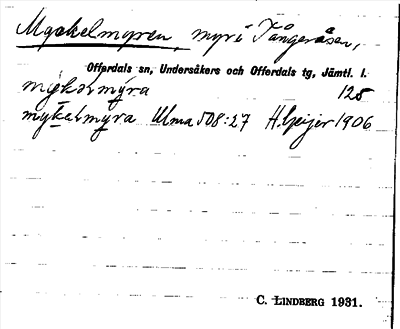 Myckelmyren, myr i Tångeråsen,
Offerdals sn, Undersåkers och Offerdals tg, Jämtl. l.
mykəlmyra 125
mykelmyra Ulma 508:27 H. Geijer 1906
C. LINDBERG 1931.